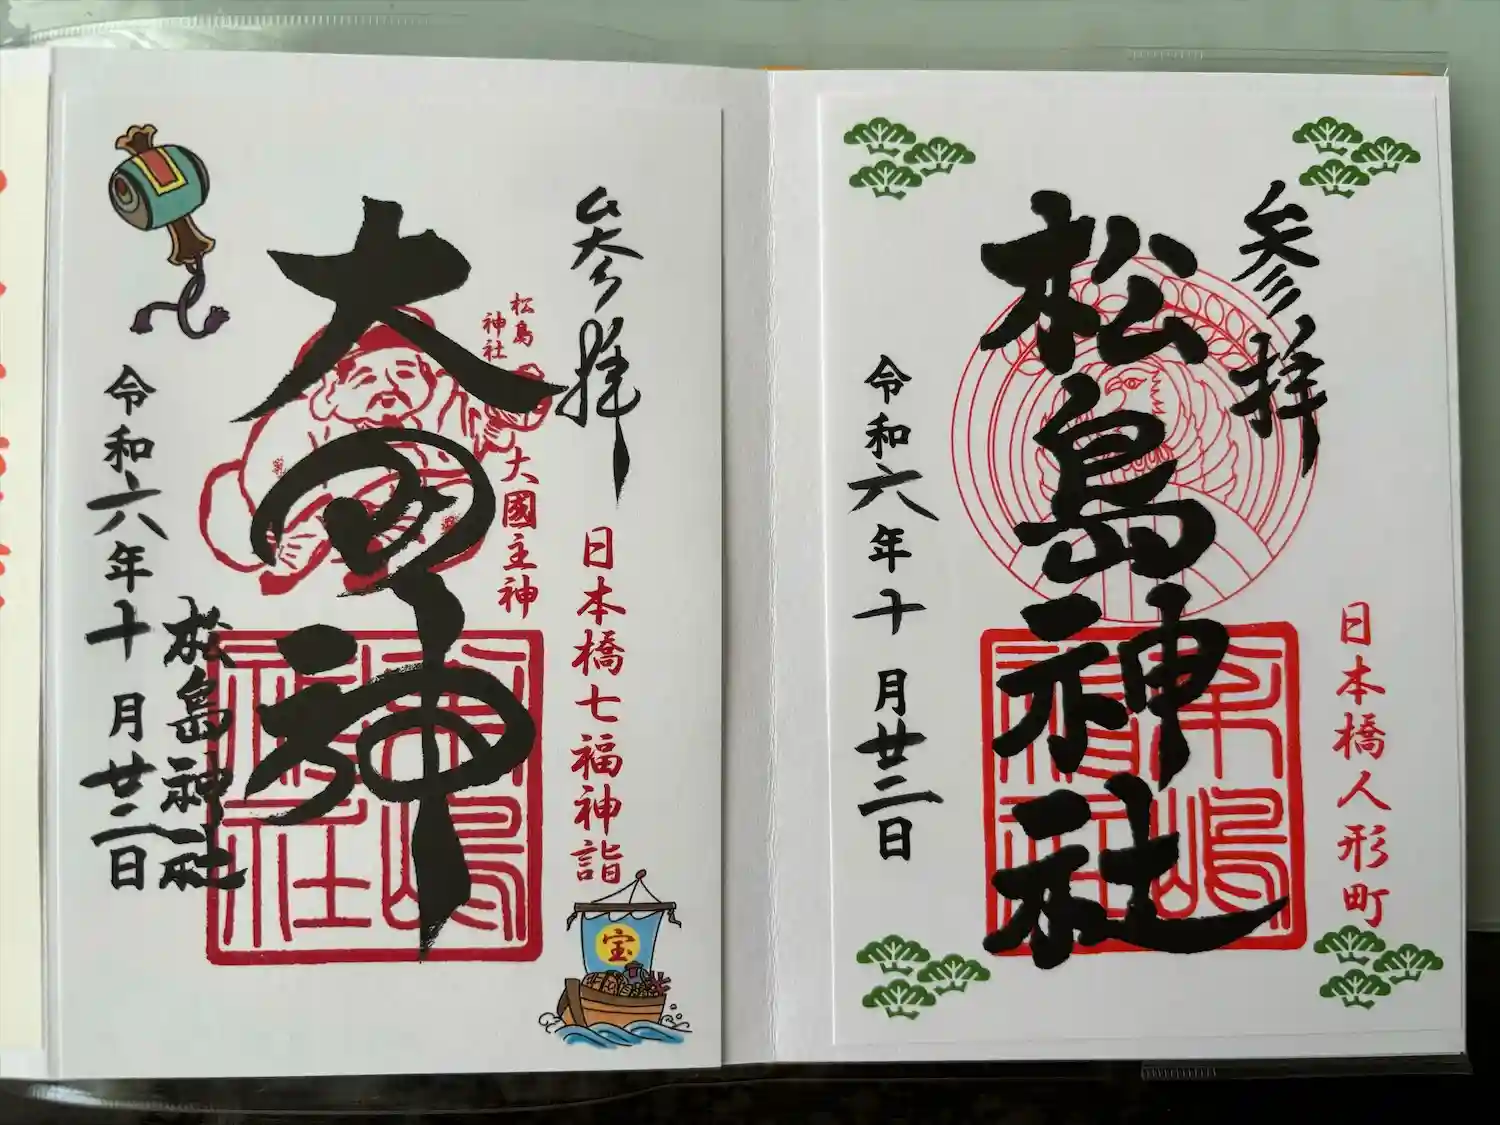 参拝
日本橋人形町
松島神社
令和六年十月廿二日
参拝
日本橋七福神詣
宝
松島
神社
大國主神
大国神
松島神社
令和六年十月廿二日